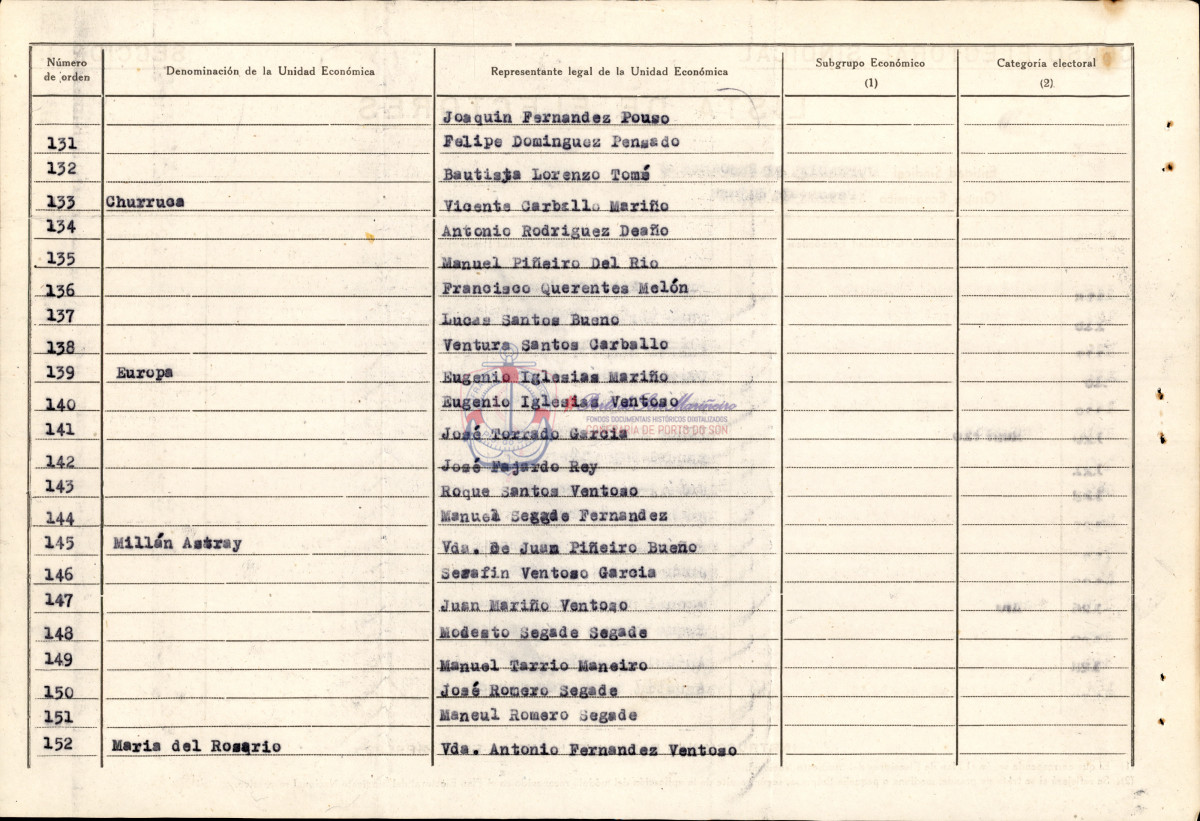 Número de orden Denominación de la Unidad Económica Representante legal de la Unidad Económica Subgrupo Económico (1) Categoría electoral (2)
Joaquin Fernandez Pouso
131 Felipe Dominguez Pensado
132 Bautista Lorenzo Tomé
133 Churruca Vicente Carballo Mariño
134 Antonio Rodriguez Deaño
135 Manuel Piñeiro Del Rio
136 Francisco Querentes Melón
137 Lucas Santos Bueno
138 Ventura Santos Carballo
139 Europa Eugenio Iglesias Mariño
140 Eugenio Iglesias Ventoso
FONDOS DOCUMENTAIS HISTÓRICOS DIXITALIZADOS
COFRADÍA DE PORTO DO SON
141 José Torrado Garcia
142 José Fajardo Rey
143 Roque Santos Ventoso
144 Manuel Segade Fernandez
145 Millán Astray Vda. de Juan Piñeiro Bueno
146 Serafin Ventoso Garcia
147 Juan Mariño Ventoso
148 Modesto Segade Segade
149 Manuel Tarrio Maneiro
150 José Romero Segade
151 Maneul Romero Segade
152 Maria del Rosario Vda. Antonio Fernandez Ventoso